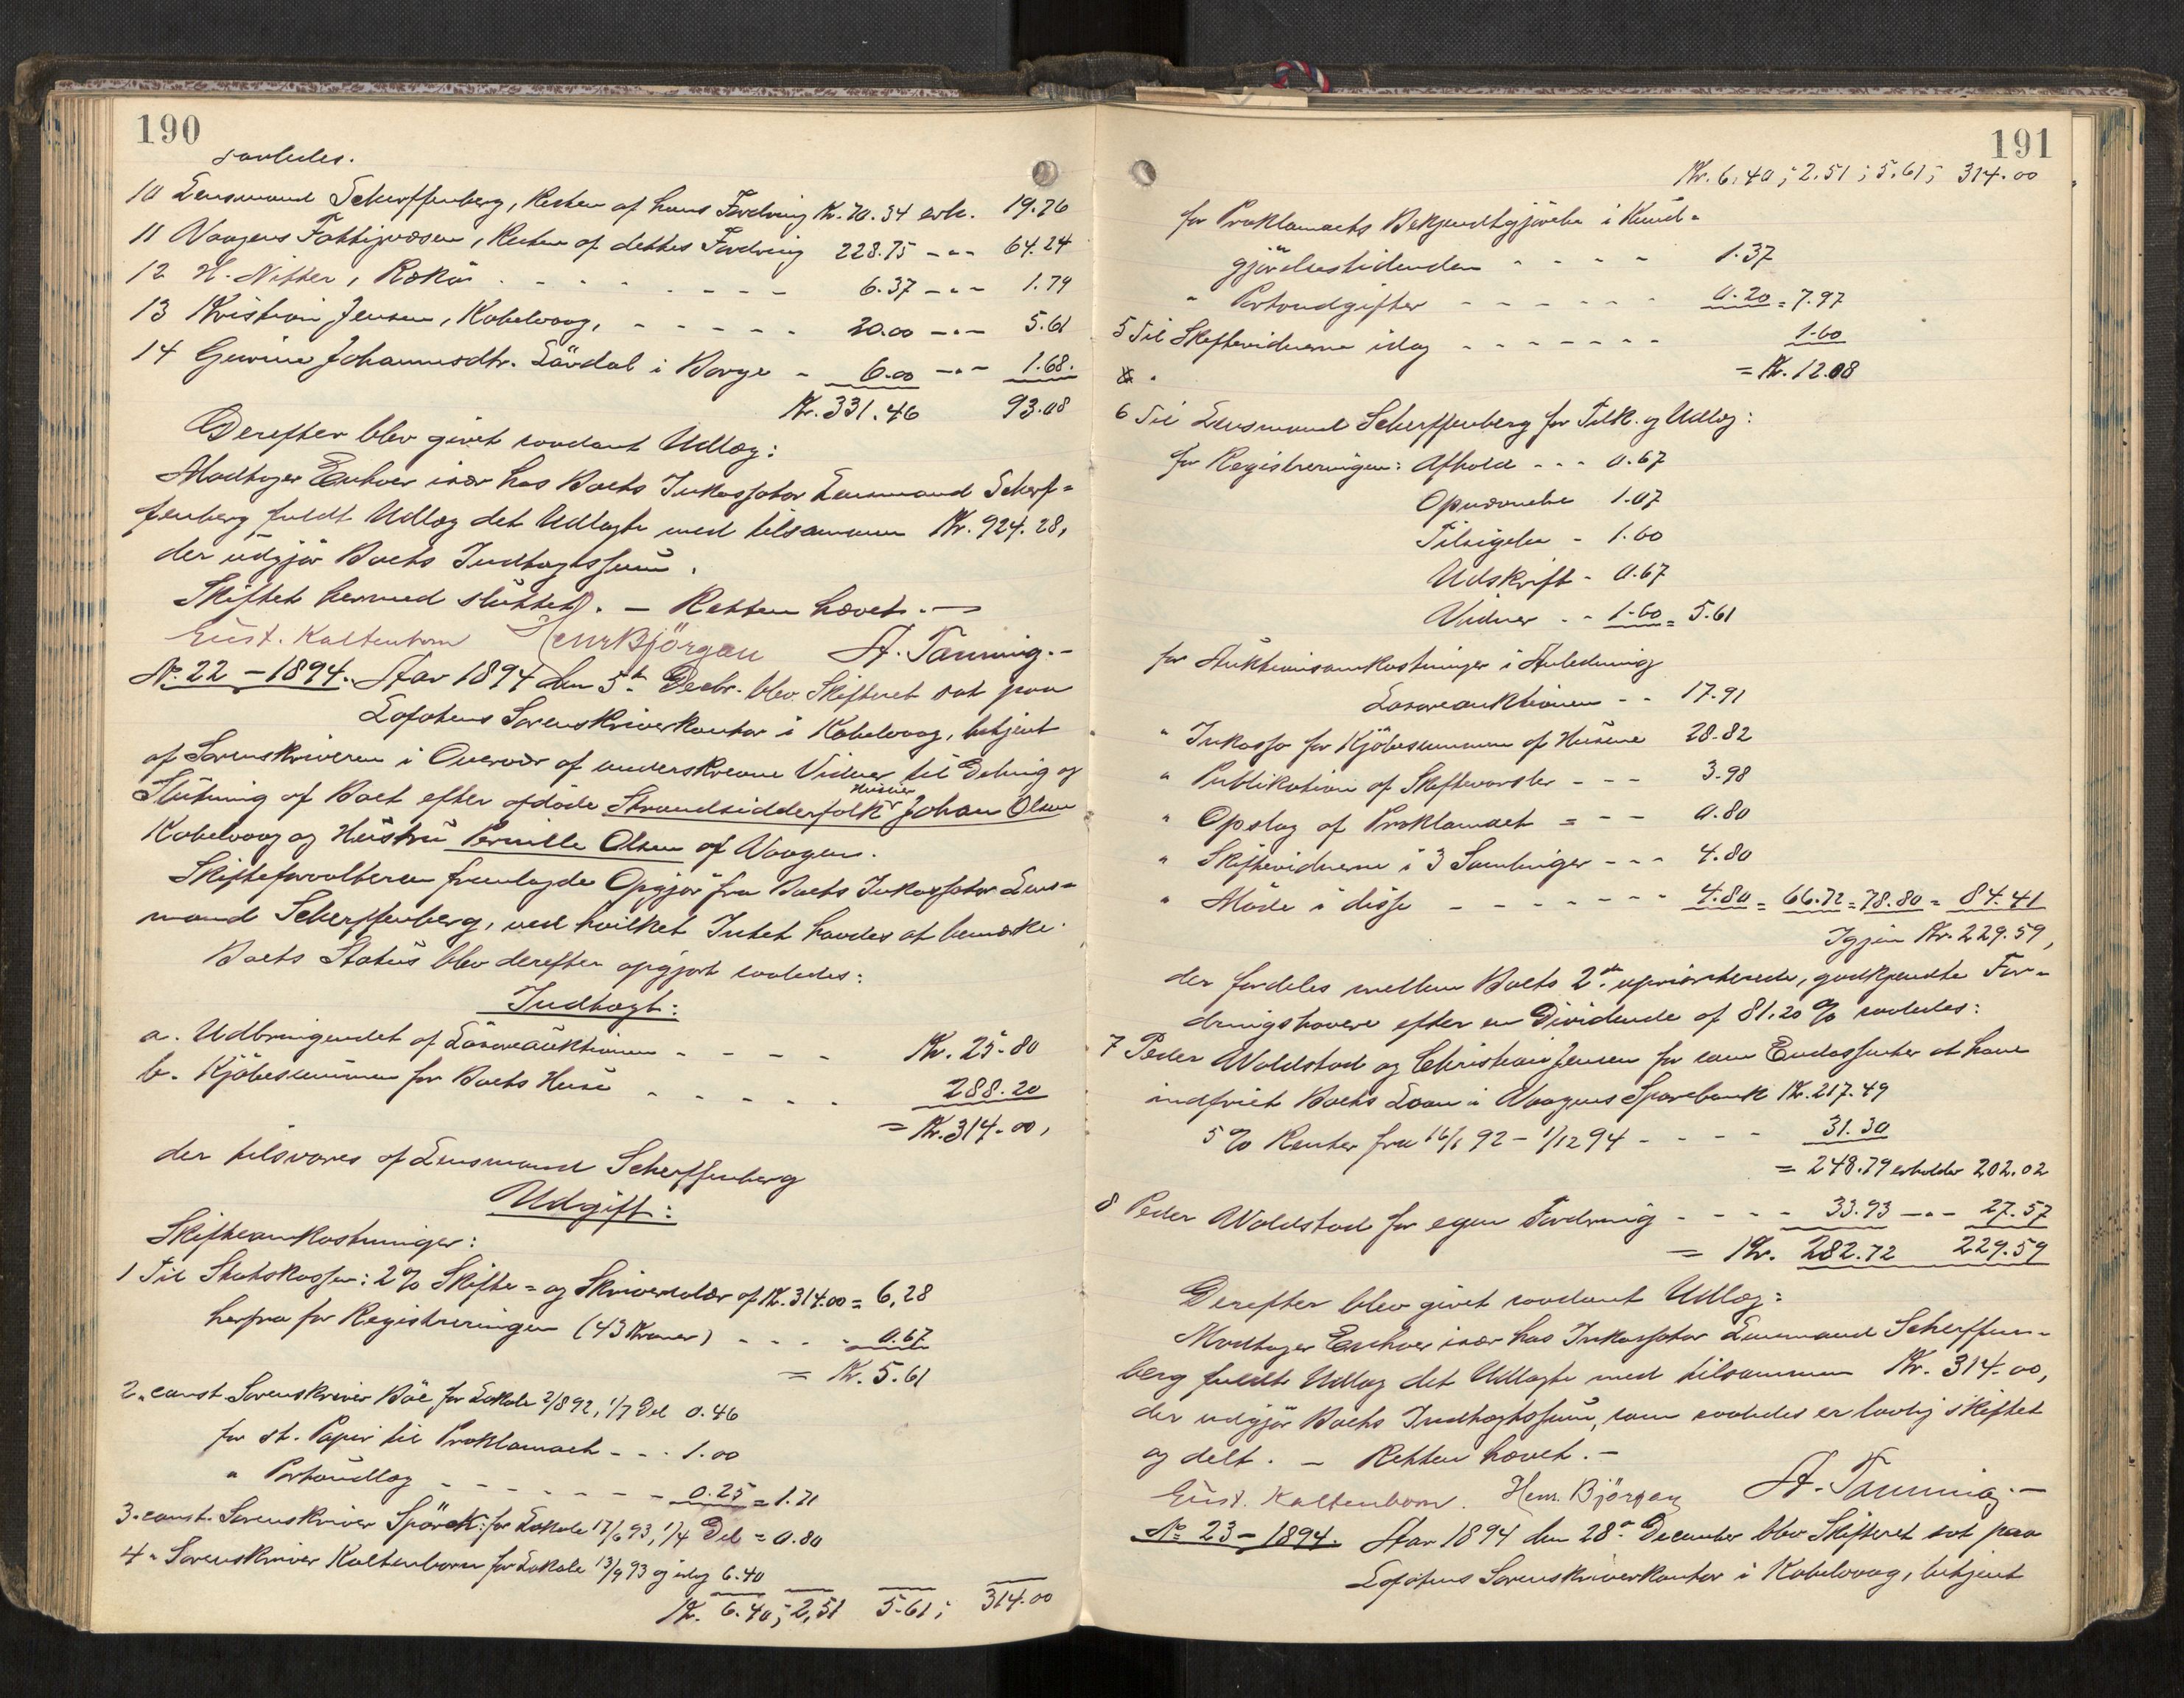 190
saaledes.
10 Lensmand Scherffenberg, Resten af hans Fordring Kr. 70.34 erh. 19.76
11 Vaagens Fattigvæsen, Resten af dettes Fordring 228.75 -"- 64.24
12 H. Nitter, Rækø - - - - - - - 6.37 -"- 1.79
13 Kristian Jensen, Kabelvaag, - - - - - 20.00 -"- 5.61
14 Gurine Johannesdtr. Lövdal i Borge - 6.00 -"- 1.68.
Kr. 331.46 93.08
Derefter blev givet saadant Udlæg:
Modtager Enhver især hos Boets Inkassator Lensmand Scherf-
fenberg fuldt Udlæg det Udlagte med tilsammen Kr. 924.28,
der udgjør Boets Indtægtssum.
Skiftet hermed sluttet. – Retten hævet. –
Eust. Kaltenborn HenrBjörgan A. Tanning.-
No 22 – 1894. Aar 1894 den 5te Decbr. blev Skifteret sat paa
Lofotens Sorenskriverkontor i Kabelvaag, betjent
af Sorenskriveren i Overvær af underskrevne Vidner til Deling og
Slutning af Boet efter afdøde Strandsidderfolk Husmr Johan Olsen
Kabelvaag og Hustru Pernille Olsen af Vaagen.
Skifteforvalteren fremlagde Opgjør fra Boets Inkassator Lens-
mand Scherffenberg, ved hvilket Intet havdes at bemærke.
Boets Status blev derefter opgjort saaledes:
Indtægt:
a. Udbringendet af Løsøreauktionen - - - - Kr. 25.80
b. Kjøbesummen for Boets Huse - - - - - 288.20
= Kr. 314.00,
der tilsvares af Lensmand Scherffenberg
Udgift:
Skifteomkostninger:
1 Til Statskassen: 2% Skifte- og Skriversalær af Kr. 314.00 = 6,28
herfra for Registreringen (43 Kroner) - - - - 0.67
= Kr. 5.61
2. const. Sorenskriver Böe for Lokale 2/8 92, 1/7 Del 0.46
for st. Papir til Proklamaet - - - 1.00
" Portoudlæg - - - - - - - 0.25 = 1.71
3. const. Sorenskriver Spörck: for Lokale 17/6 93, 1/4 Del = 0.80
4 " Sorenskriver Kaltenborn for Lokale 13/9 93 og idag 6.40
Kr. 6.40; 2,51 5.61; 314.00
191
Kr. 6.40; 2.51; 5.61; 314.00
for Proklamaets Bekjendtgjørelse i Kund-
gjørelsestidenden - - - - 1.37
" Portoudgifter - - - - - - 0.20 = 7.97
5 Til Skiftevidnerne idag - - - - - - - 1.60
= Kr. 12.08
6 Til Lensmand Scherffenberg for Tilk. og Udlæg:
for Registreringen: Afhold - - - 0.67
Opnævnelse 1.07
Tilsigelse - 1.60
Udskrift - 0.67
Vidner - - 1.60 = 5.61
for Auktionsomkostninger i Anledning
Løsøreauktionen - - 17.91
" Inkasso for Kjøbesummen af Husene 28.82
" Publikation af Skiftevarsler - - - 3.98
" Opslag af Proklamaet = - - 0.80
" Skiftevidnerne i 3 Samlinger - - - 4.80
" Møde i disse - - - - - - - 4.80 = 66.72 = 78.80 = 84.41
Igjen Kr. 229.59,
der fordeles mellem Boets 2de upriorterede, godkjendte For-
dringshavere efter en Dividende af 81.20 % saaledes:
7 Peder Woldstad og Christian Jensen for som Endossenter at have
indfriet Boets Laan i Vaagens Sparebank Kr. 217.49
5 % Renter fra 16/1 92 – 1/12 94 - - - - 31.30
= 248.79 erholder 202.02
8 Peder Woldstad for egen Fordring - - - - 33.93 -"- 27.57
= Kr. 282.72 229.59
Derefter blev givet saadant Udlæg:
Modtager Enhver især hos Inkassator Lensmand Scherffen-
berg fuldt Udlæg det Udlagte med tilsammen Kr. 314.00,
der udgjør Boets Indtægtssum, som saaledes er lovlig skiftet
og delt. – Retten hævet. –
Eust. Kaltenborn. Henr. Björgan A. Tanning.-
No 23 – 1894. Aar 1894 den 28de December blev Skifteret sat paa
Lofotens Sorenskriverkontor i Kabelvaag, betjent